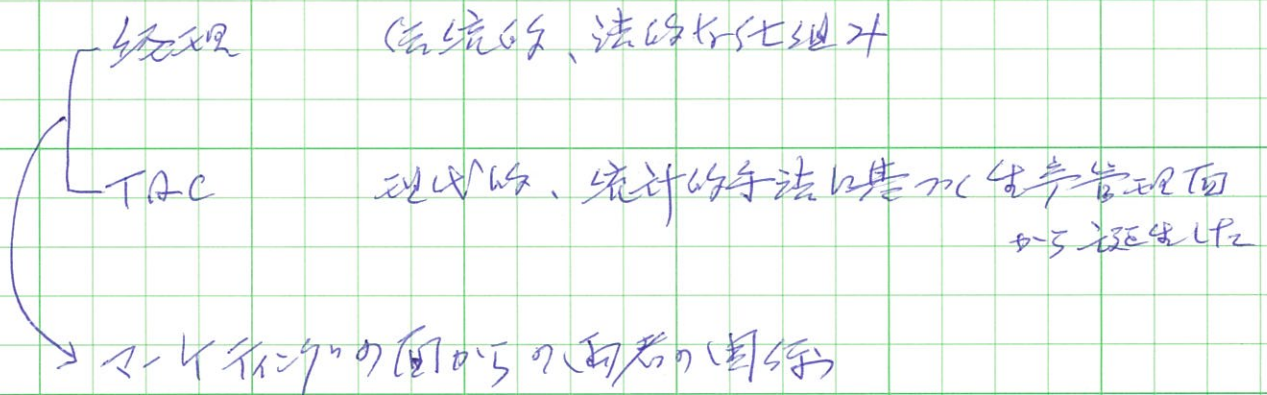 経理 伝統的、法的な仕組み
TAC 現代的、統計的手法に基づく生産管理面
から誕生した
マーケティングの面からの両者の関係